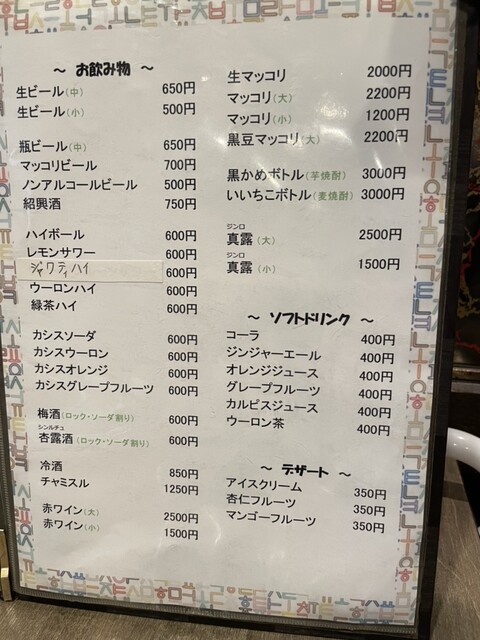 ～ お飲み物 ～
生ビール（中） 650円
生ビール（小） 500円
瓶ビール（中） 650円
マッコリビール 700円
ノンアルコールビール 500円
紹興酒 750円
ハイボール 600円
レモンサワー 600円
ジャワティハイ 600円
ウーロンハイ 600円
緑茶ハイ 600円
カシスソーダ 600円
カシスウーロン 600円
カシスオレンジ 600円
カシスグレープフルーツ 600円
梅酒（ロック・ソーダ割り） 600円
シンルチュ
杏露酒（ロック・ソーダ割り） 600円
冷酒 850円
チャミスル 1250円
赤ワイン（大） 2500円
赤ワイン（小） 1500円
生マッコリ 2000円
マッコリ（大） 2200円
マッコリ（小） 1200円
黒豆マッコリ（大） 2200円
黒かめボトル（芋焼酎） 3000円
いいちこボトル（麦焼酎） 3000円
ジンロ
真露（大） 2500円
ジンロ
真露（小） 1500円
～ ソフトドリンク ～
コーラ 400円
ジンジャーエール 400円
オレンジジュース 400円
グレープフルーツ 400円
カルピスジュース 400円
ウーロン茶 400円
～ デザート ～
アイスクリーム 350円
杏仁フルーツ 350円
マンゴーフルーツ 350円